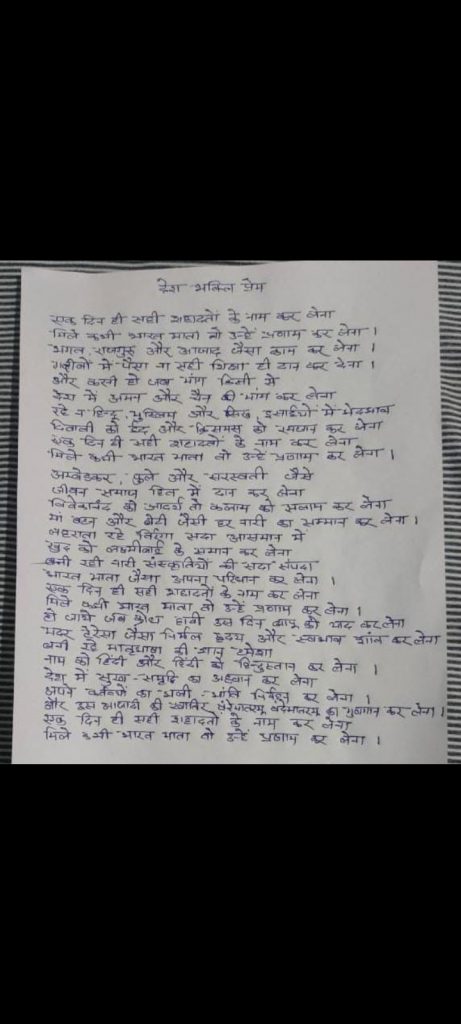 देश भक्ति प्रेम
एक दिन ही सही शहादतों के नाम कर लेना
मिले कभी भारत माता तो उन्हें प्रणाम कर लेना ।
भगत, राजगुरु और आजाद जैसा काम कर लेना ।
गरीबों में पैसा ना सही शिक्षा ही दान कर देना ।
और करनी हो जब मांग किसी से
देश में अमन और चैन की मांग कर लेना
रहे न हिन्दू, मुस्लिम और सिख, इसाईयों में भेदभाव
दिवाली को ईद और क्रिसमस को रमजान कर लेना
एक दिन ही सही शहादतों के नाम कर लेना
मिले कभी भारत माता तो उन्हें प्रणाम कर लेना ।
अम्बेडकर, फुले और सरस्वती जैसे
जीवन समाज हित में दान कर लेना
विवेकानंद को आदर्श तो कलाम को सलाम कर लेना
मां बहन और बेटी जैसी हर नारी का सम्मान कर लेना ।
लहराता रहे तिरंगा सदा आसमान में
खुद को लक्ष्मीबाई के समान कर लेना
बनी रही नारी संस्कृतियों की सदा संपदा
भारत माता जैसा अपना परिधान कर लेना ।
एक दिन ही सही शहादतों के नाम कर लेना
मिले कभी भारत माता तो उन्हें प्रणाम कर लेना ।
हो जाये जब क्रोध हावी उस दिन बापू को याद कर लेना
मदर टेरेसा जैसा निर्मल हृदय और स्वभाव शांत कर लेना
बनी रहे मातृभाषा की शान हमेशा
नाम को हिंदी और हिंदी को हिन्दुस्तान कर लेना ।
देश में सुख-समृद्धि का आह्वान कर लेना
अपने कर्तव्यों का भली-भांति निर्वहन कर लेना ।
और उस आजादी की खातिर वंदेमातरम् वंदेमातरम् का गुणगान कर लेना ।
एक दिन ही सही शहादतों के नाम कर लेना
मिले कभी भारत माता तो उन्हें प्रणाम कर लेना ।